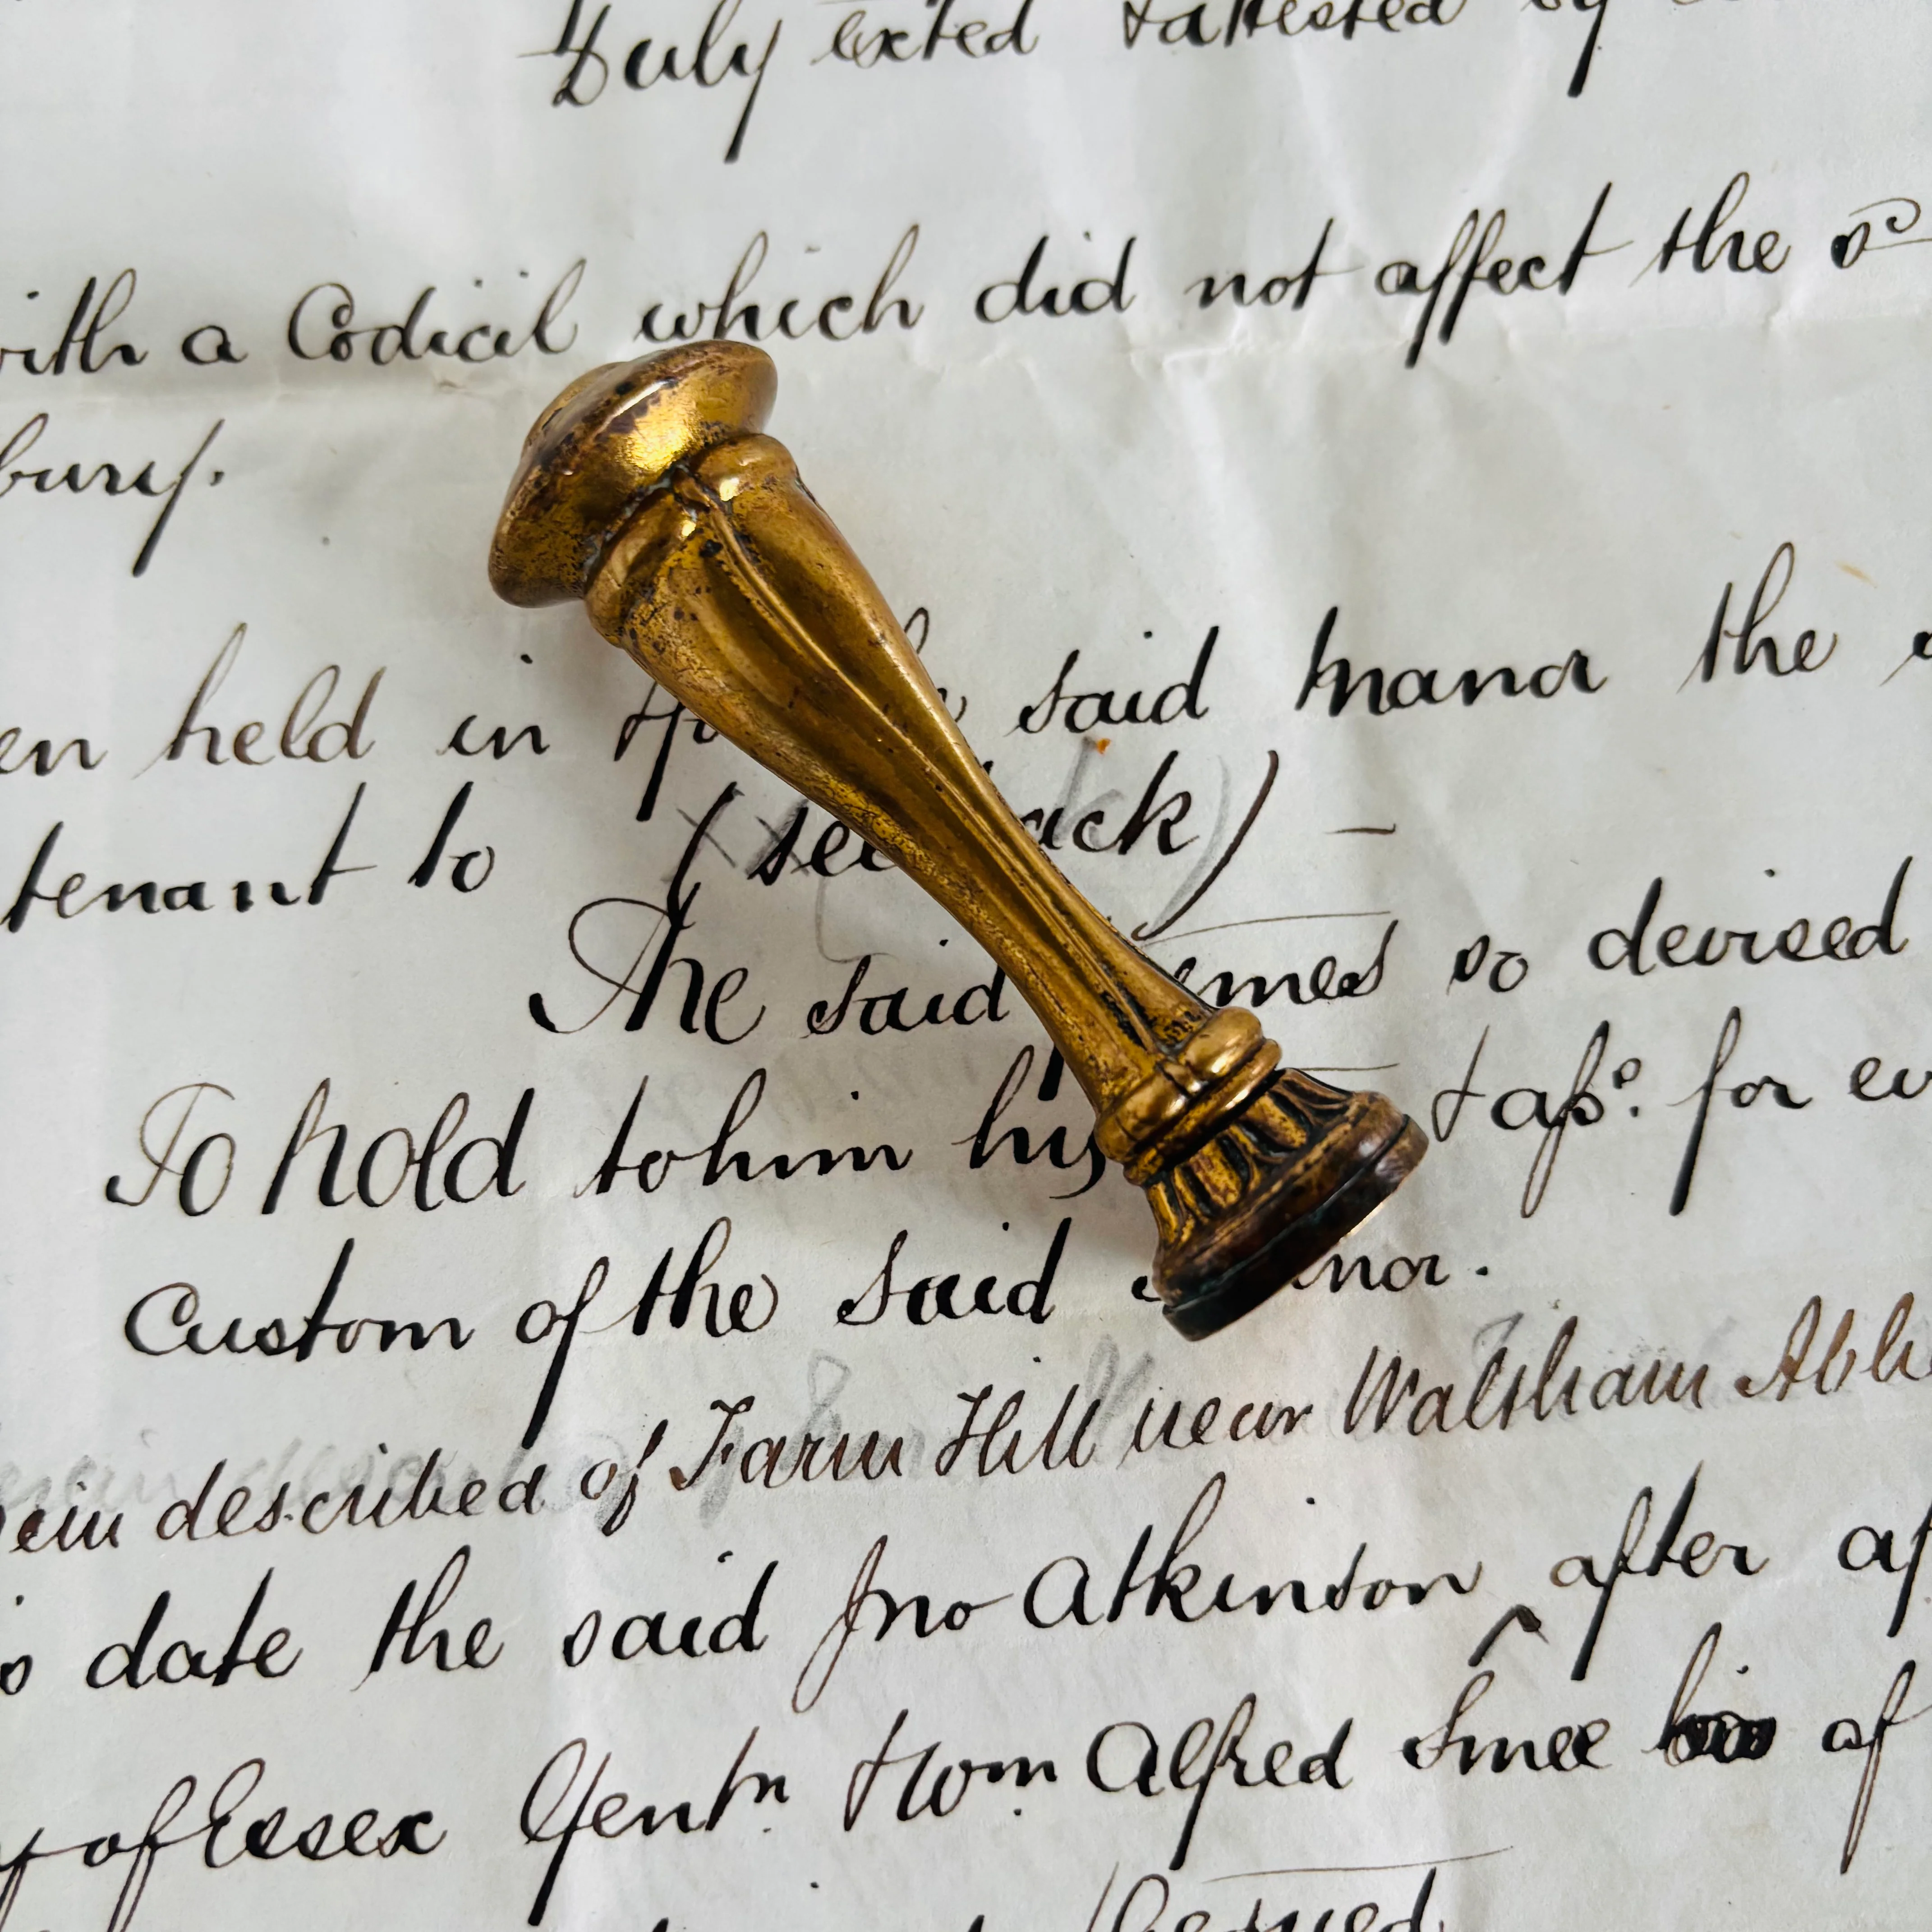 Duly exted & attested by
with a Codicil which did not affect the sd
bury.
held in said Manor the
tenant to (see back) –
The said so devised
To hold to him his & ass. for
Custom of the said Manor.
described of Farm Hill near Waltham
date the said Jno Atkinson after
of Essex Gentn. & Wm. Alfred Smee of